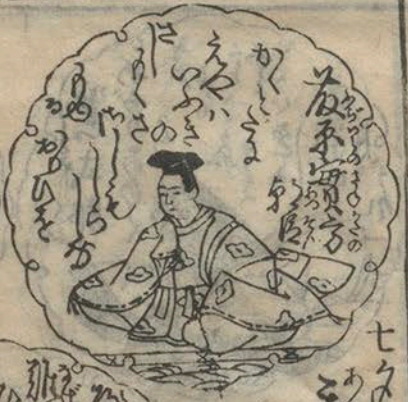 藤原實方
朝臣
かくとだに
えやハ
いぶき
の
さし
もぐさ
さしも
しらじな
もゆる
おもひを
七夕